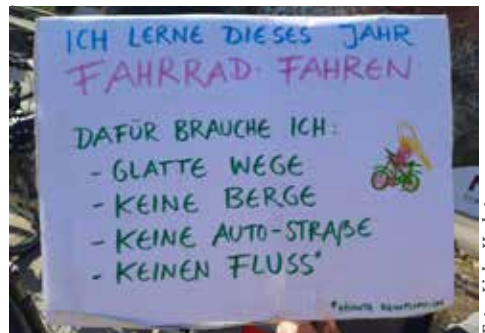 ICH LERNE DIESES JAHR
FAHRRAD-FAHREN
DAFÜR BRAUCHE ICH:
- GLATTE WEGE
- KEINE BERGE
- KEINE AUTO-STRAßE
- KEINEN FLUSS*